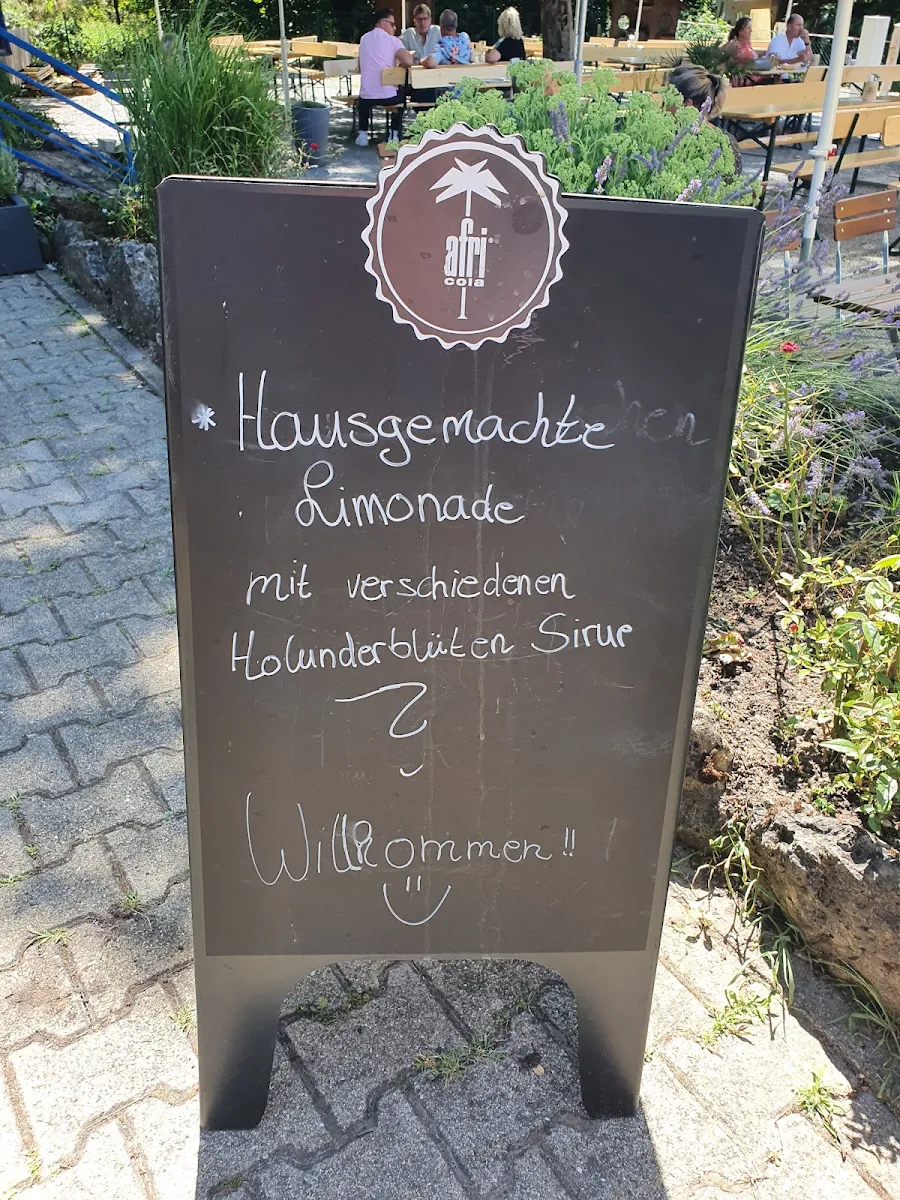 afri
cola
* Hausgemachte
Limonade
mit verschiedenen
Holunderblüten Sirup
Willkommen!!